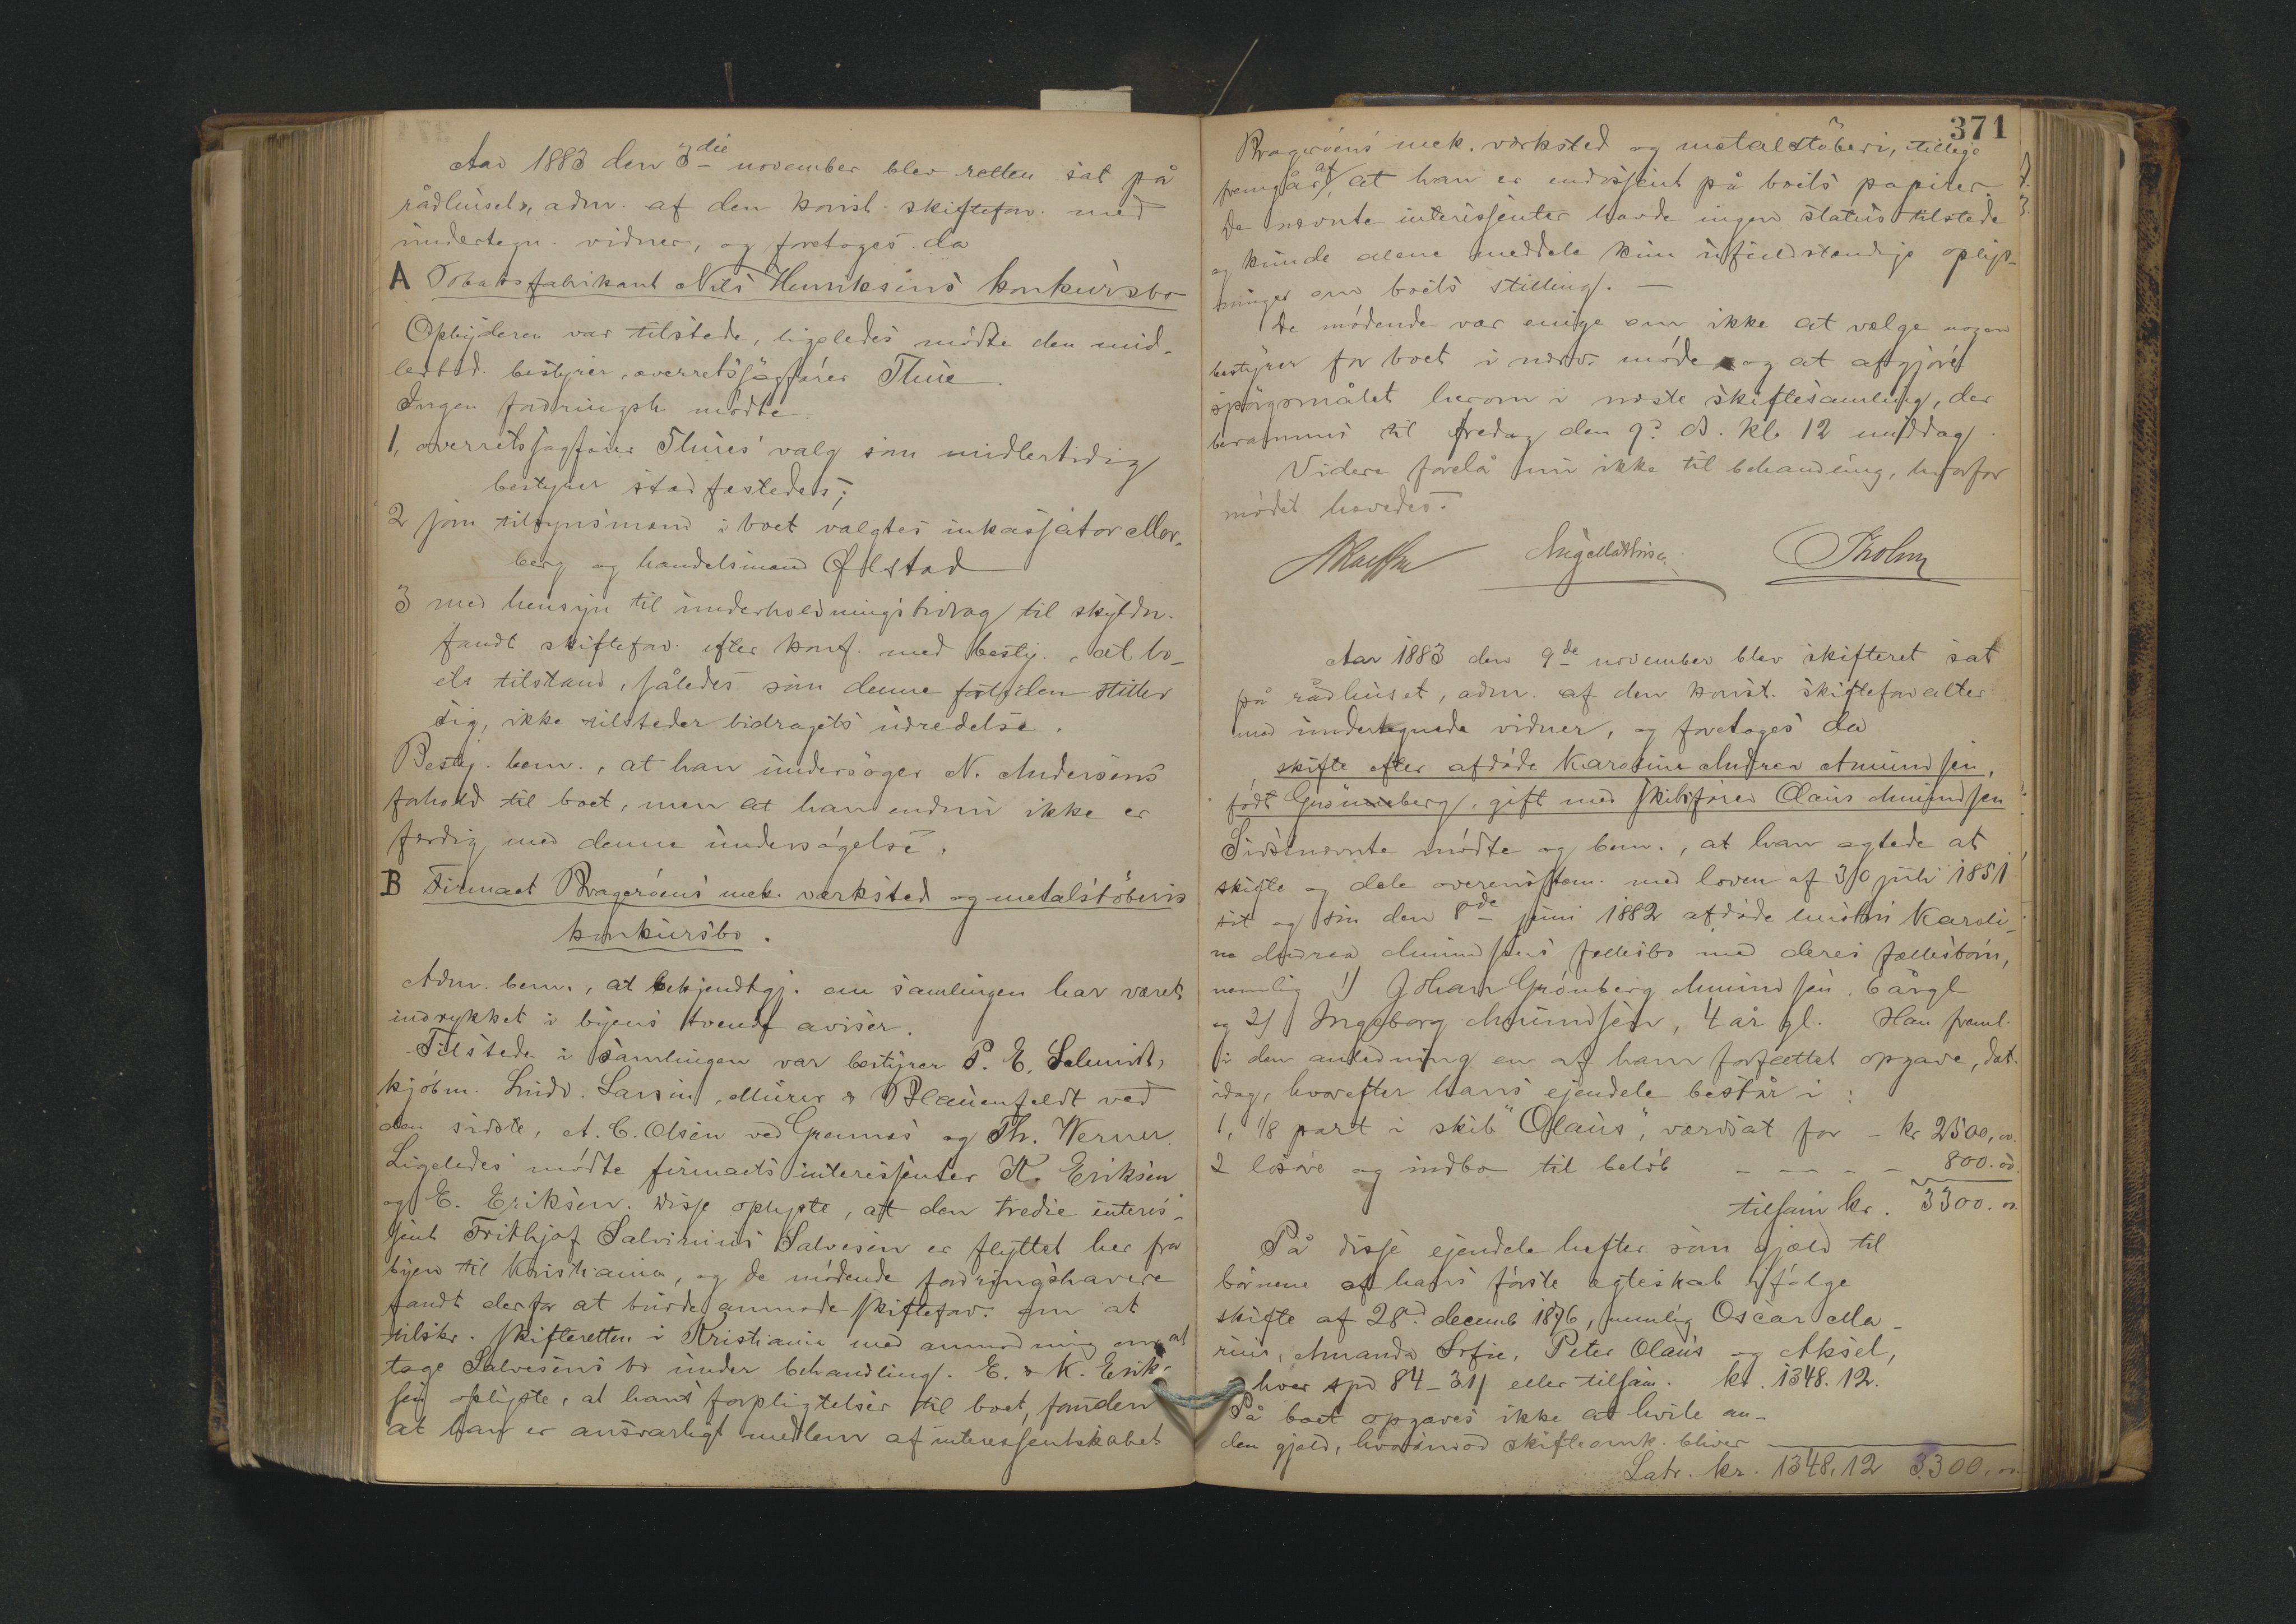 Aar 1883 den 3die november blev retten sat på
rådhuset, adm. af den konst. skiftefor. med
undertegn. vidner, og foretoges da
A Tobaksfabrikant Nils Henriksens konkursbo
Opbyderen var tilstede, ligeledes mødte den mid-
lertid. bestyrer, overretssagfører Thue.
Ingen fordringsh. mødte.
1, overretssagfører Thues' valg som midlertidig
bestyrer stadfæstedes;
2 som tilsynsmænd i boet valgtes inkassator Mor-
berg og handelsmand Ølstad
3 med hensyn til underholdningsbidrag til skyldn.
fandt skiftefor. efter konf. med besty., at bo-
ets tilstand, således som denne for tiden stiller
sig, ikke tilsteder bidragets udredelse.
Besty. bem., at han undersøger N. Andersens
forhold til boet, men at han endnu ikke er
færdig med denne undersøgelse.
B Firmaet Bragerøens mek. værksted og metalstøberis
konkursbo.
Adm. bem., at bekjendtgj. om samlingen har været
indrykket i byens tvende aviser.
Tilstede i samlingen var bestyrer P. E. Schmidt,
kjøbm. Ludv. Larsen, Mürer & Blauenfeldt ved
den sidste, A. C. Olsen ved Grennes og Th. Werner.
Ligeledes mødte firmaets interessenter K. Eriksen
og E. Eriksen. Disse oplyste, at den tredie interes-
sent Frithjof Salvinius Salvesen er flyttet her fra
byen til Kristiania, og de mødende fordringshavere
fandt derfor at burde anmode skiftefor. om at
tilskr. skifteretten i Kristiania med anmodning om at
tage Salvesens bo under behandling. E. & K. Erik-
sen oplyste, at hans forpligtelser til boet, foruden
at han er ansvarligt medlem af interessentskabet
371
Bragerøens mek. værksted og metalstøberi, tillige
fremgår af, at han er endossent på boets papirer.
De nævnte interessenter havde ingen status tilstede
og kunde alene meddele kun ufuldstændige oplys-
ninger om boets stilling. —
De mødende var enige om ikke at vælge nogen
bestyrer for boet i nærv. møde og at afgjøre
spørgsmålet herom i næste skiftesamling, der
berammes til fredag den 9. d. kl. 12 middag.
Videre forelå nu ikke til behandling, hvorfor
mødet hævedes.
Tholm
Aar 1883 den 9de november blev skifteret sat
på rådhuset, adm. af den konst. skifteforvalter
med undertegnede vidner, og foretoges da
skifte efter afdøde Karoline Andrea Amundsen,
født Grönneberg, gift med skibsfører Olaus Amundsen
Sidstnævnte mødte og bem., at han agtede at
skifte og dele overensstem. med loven af 30 juli 1851
sit og sin den 8de juni 1882 afdøde hustru Karoli-
ne Andrea Amundsens fællesbo med deres fællesbørn,
nemlig 1) Johan Grönberg Amundsen, 6 år gl
og 2) Ingeborg Amundsen, 4 år gl. Han freml.
i den anledning en af ham forfattet opgave, dat.
idag, hvorefter hans ejendele består i:
1, 1/8 part i skib "Olaus", værdsat for - kr 2500,00.
2 løsøre og indbo til beløb — — — — 800.00.
tilsam kr. 3300.00.
På disse ejendele hefter som gjæld til
børnene af hans første egteskab ifølge
skifte af 28. decemb 1876, nemlig Oscar Ma-
rius, Amanda Sofie, Peter Olaus og Aksel,
hver spd 84-31 eller tilsam. kr. 1348.12.
På boet opgaves ikke at hvile an-
den gjæld, hvorimod skifteomk. bliver
Latr. kr. 1348,12 3300,00.